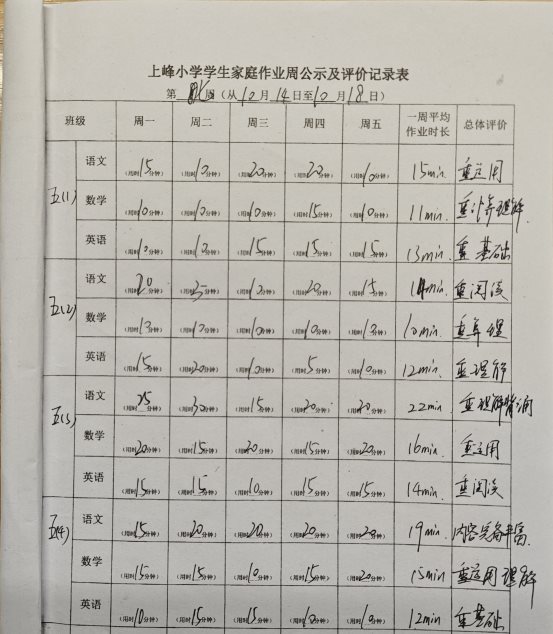 上峰小学学生家庭作业周公示及评价记录表
第 周（从10月14日至10月18日）
班级 周一 周二 周三 周四 周五 一周平均作业时长 总体评价
五(1) 语文 （用时15分钟） （用时10分钟） （用时20分钟） （用时20分钟） （用时10分钟） 15min. 重运用
数学 （用时10分钟） （用时10分钟） （用时10分钟） （用时15分钟） （用时10分钟） 11min. 重计算理解
英语 （用时10分钟） （用时10分钟） （用时15分钟） （用时15分钟） （用时15分钟） 13min. 重基础
五(2) 语文 （用时20分钟） （用时5分钟） （用时10分钟） （用时20分钟） （用时15分钟） 14min. 重阅读
数学 （用时10分钟） （用时10分钟） （用时10分钟） （用时10分钟） （用时10分钟） 10min. 重算理
英语 （用时15分钟） （用时20分钟） （用时10分钟） （用时5分钟） （用时10分钟） 12min. 重理解
五(3) 语文 （用时25分钟） （用时30分钟） （用时15分钟） （用时20分钟） （用时20分钟） 22min 重理解背诵
数学 （用时20分钟） （用时15分钟） （用时20分钟） （用时15分钟） （用时20分钟） 16min. 重运用
英语 （用时15分钟） （用时15分钟） （用时10分钟） （用时15分钟） （用时15分钟） 14min. 重阅读
五(4) 语文 （用时15分钟） （用时20分钟） （用时20分钟） （用时20分钟） （用时20分钟） 19min. 内容完备丰富
数学 （用时15分钟） （用时15分钟） （用时10分钟） （用时15分钟） （用时20分钟） 15min 重运用理解
英语 （用时10分钟） （用时15分钟） （用时15分钟） （用时10分钟） （用时10分钟） 12min 重基础